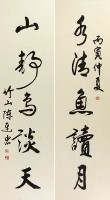 丙寅仲夏
水清魚讀月
山靜鳥談天
竹山陳達忠